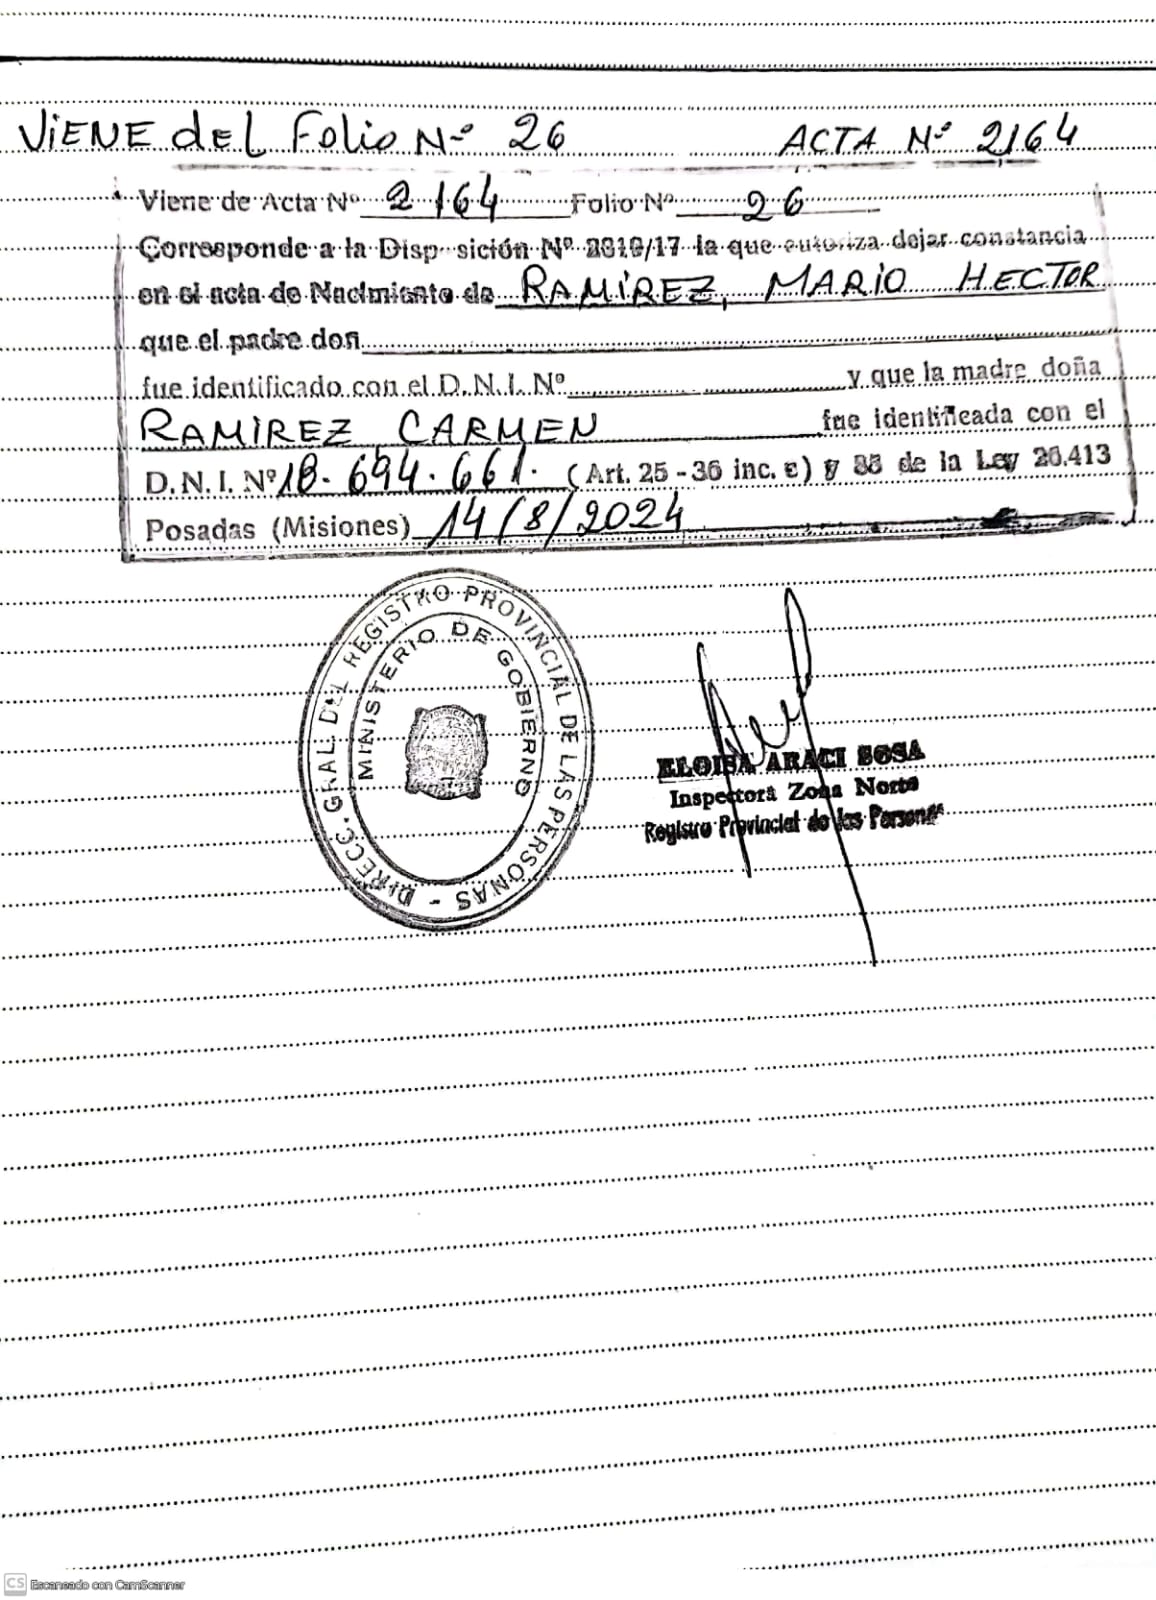 ViENE dEL Folio Nº 26 ACTA Nº 2164
Viene de Acta Nº 2164 Folio Nº 26
Corresponde a la Disp sición Nº 2819/17 la que autoriza dejar constancia
en el acta de Nacimiento de RAMÍREZ, MARIO HECTOR
que el padre don
fue identificado con el D.N.I. Nº y que la madre doña
RAMIREZ CARMEN fue identificada con el
D.N.I. Nº 18.694.661. (Art. 25 - 36 inc. c) y 88 de la Ley 26.413
Posadas (Misiones) 14/8/2024
DIRECC. GRAL. DEL REGISTRO PROVINCIAL DE LAS PERSONAS -
MINISTERIO DE GOBIERNO
ELOISA ARACI SOSA
Inspectora Zona Norte
Registro Provincial de las Personas
CS Escaneado con CamScanner